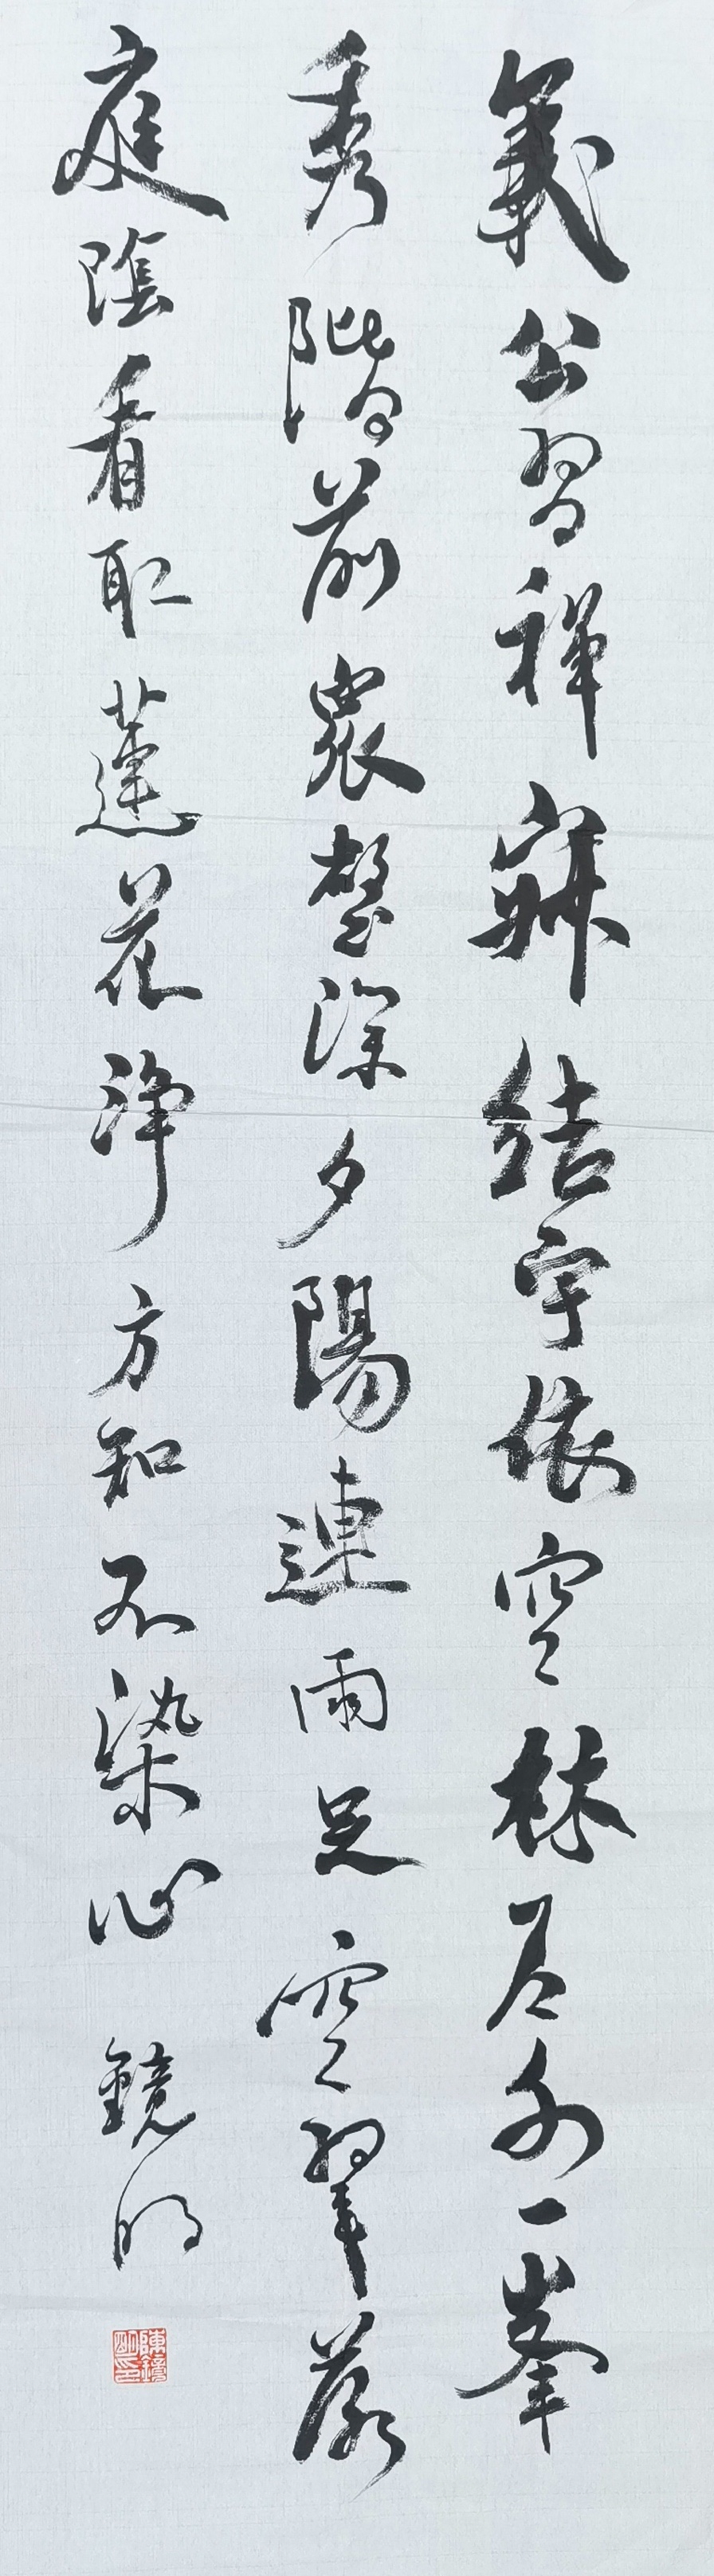 義公習禪寂結宇依空林戶外一峯
秀階前衆壑深夕陽連雨足空翠落
庭陰看取蓮花淨方知不染心 鏡明
陳鏡明印